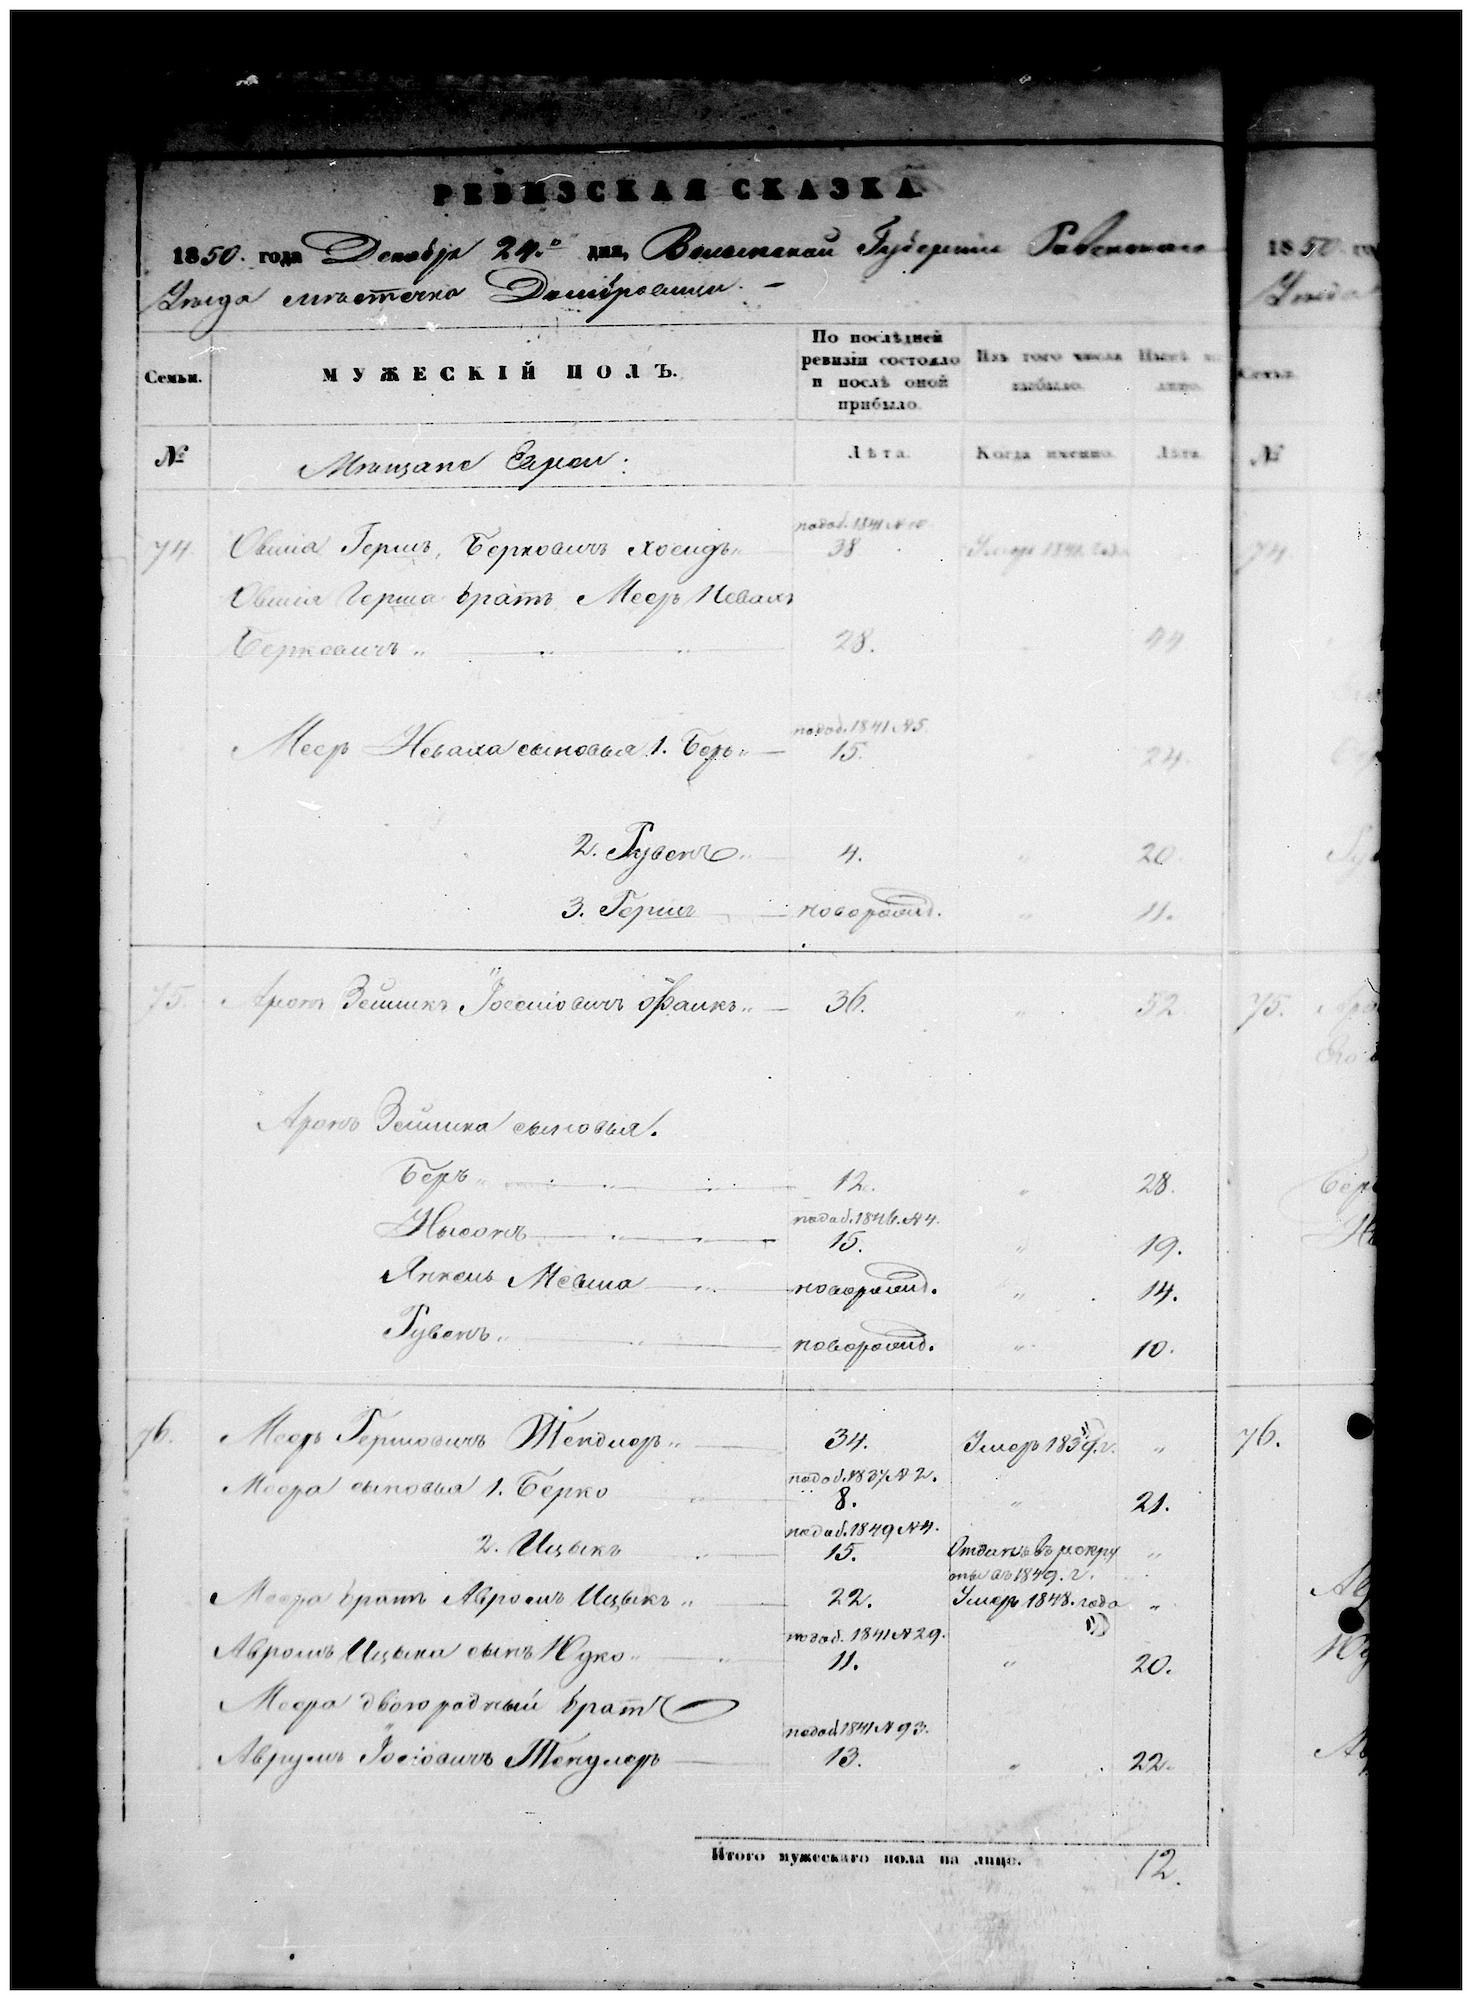 РЕВИЗСКАЯ СКАЗКА
1850. года Декабря 24.го дня, Волынской Губерніи Ровенского
Уѣзда мѣстечка Домбровицы. –
Семьи.
МУЖЕСКІЙ ПОЛЪ.
По послѣдней ревизіи состояло и послѣ оной прибыло.
Изъ того числа выбыло.
Нынѣ на лицо.
№
Мѣщане Евреи:
Лѣта.
Когда именно.
Лѣта.
74. Овшіа Гершъ, Берковичъ Хосидъ подоб. 1841 38 Умеръ 1841. года
Овшіа Герша братъ Мееръ Невахъ
Берковичъ 28. 44
Мееръ Неваха сыновья 1. Беръ подоб. 1841 №5. 15. 24.
2. Рувенъ 4. 20.
3. Гершъ новорожд. 11.
75. Аронъ Зейликъ Іосіовичъ Фаликъ 36. 52.
Аронъ Зейлика сыновья.
Беръ 12. 28.
Нысонъ подоб. 1846. №4. 15. 19.
Янкель Мевша новорожд. 14.
Рувенъ новорожд. 10.
76. Мееръ Гершовичъ 34. Умеръ 1839. г.
Меера сыновья 1. Берко подоб. 1837 №2. 8. 21.
2. Ицыкъ подоб. 1849 №4. 15. Отданъ въ рекру
ты въ 1849. г.
Меера братъ Авромъ Ицыкъ 22. Умеръ 1848. года
Авромъ Ицыка сынъ Юдко подоб. 1841 №29. 11. 20.
Меера двоюродный братъ
Аврумъ Іосіовичъ подоб. 1841 №93. 13. 22.
Итого мужескаго пола на лице. 12.
1850. го
Уѣзда
Семьи.
№
74.
75.
76.